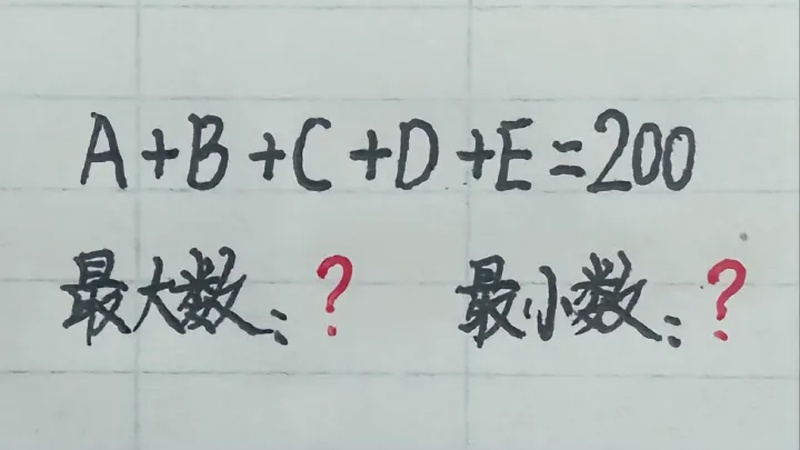 A+B+C+D+E=200
最大数:? 最小数:?